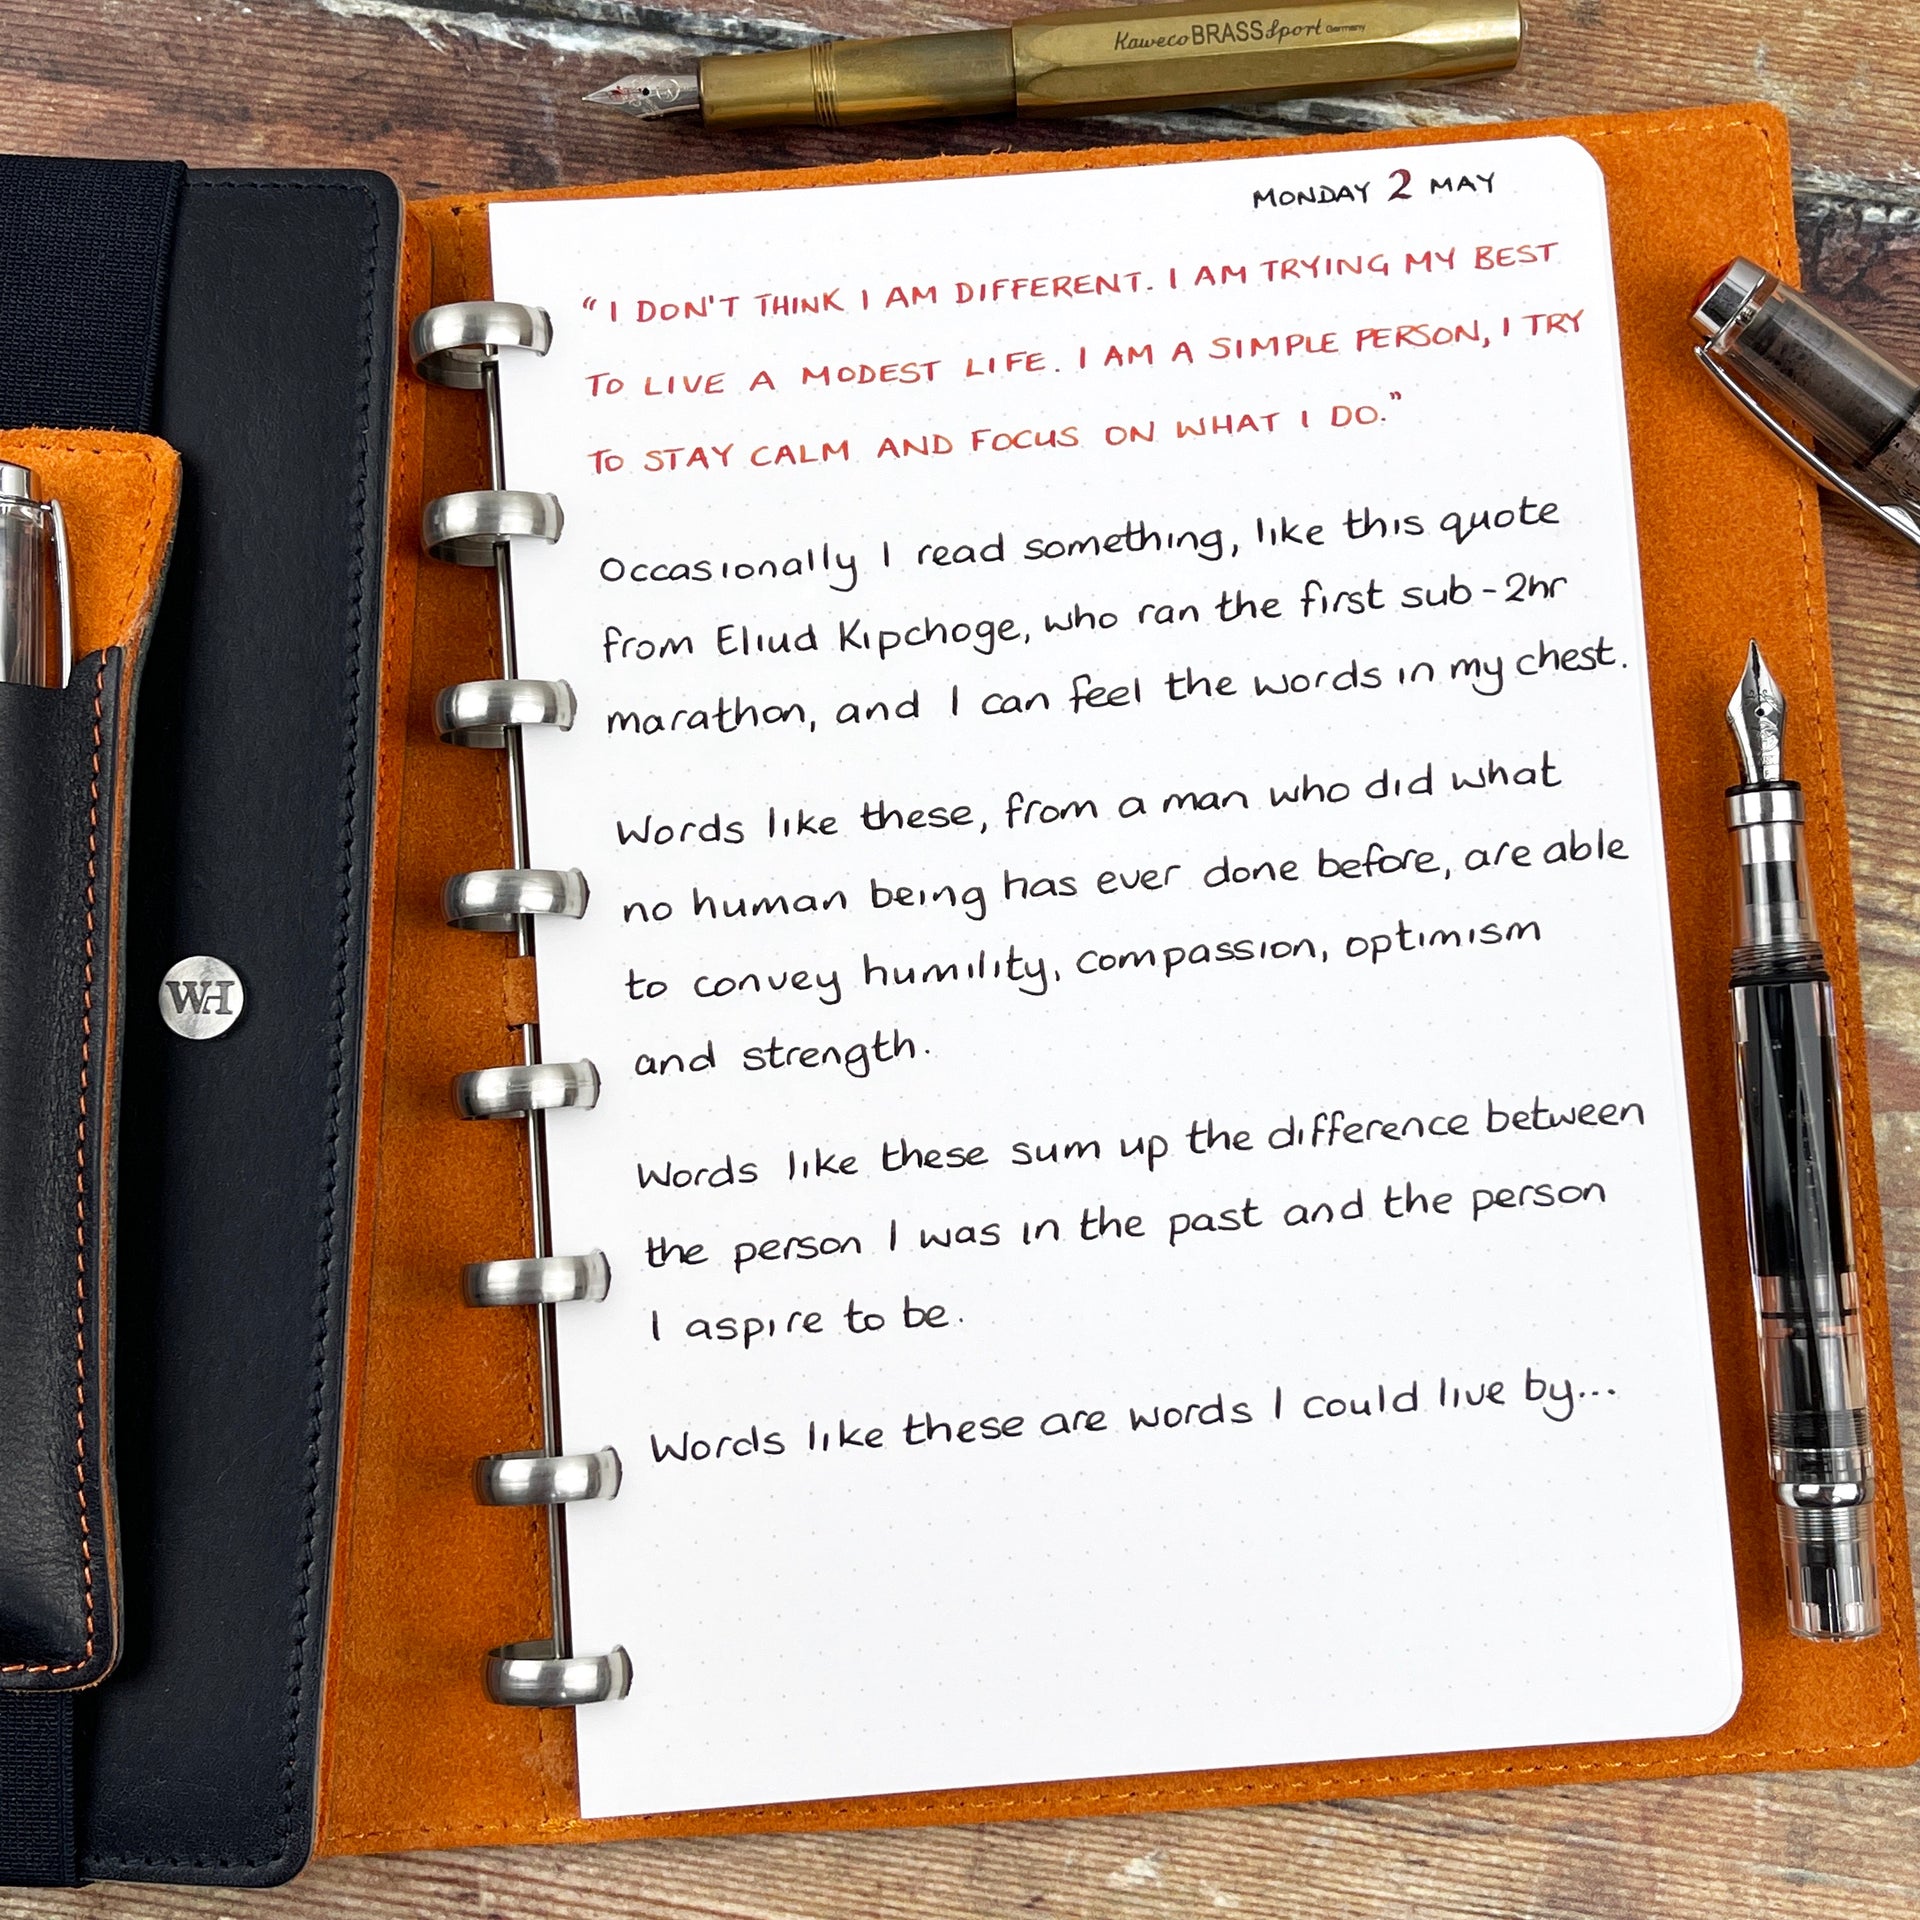 Kaweco BRASS Sport Germany
MONDAY 2 MAY
“I DON'T THINK I AM DIFFERENT. I AM TRYING MY BEST
TO LIVE A MODEST LIFE. I AM A SIMPLE PERSON, I TRY
TO STAY CALM AND FOCUS ON WHAT I DO.”
Occasionally I read something, like this quote
from Eliud Kipchoge, who ran the first sub-2hr
marathon, and I can feel the words in my chest.
Words like these, from a man who did what
no human being has ever done before, are able
to convey humility, compassion, optimism
and strength.
Words like these sum up the difference between
the person I was in the past and the person
I aspire to be.
Words like these are words I could live by...
WH